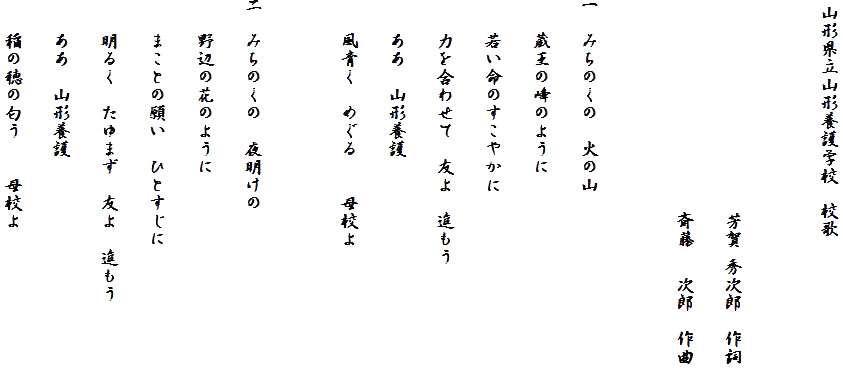 山形県立山形養護学校　校歌
芳賀 秀次郎　作詞
斉藤　次郎　作曲
一　みちのくの　火の山
蔵王の峰のように
若い命のすこやかに
力を合わせて　友よ　進もう
ああ　山形養護
風青く　めぐる　母校よ
二　みちのくの　夜明けの
野辺の花のように
まことの願い　ひとすじに
明るく　たゆまず　友よ　進もう
ああ　山形養護
稲の穂の匂う　母校よ